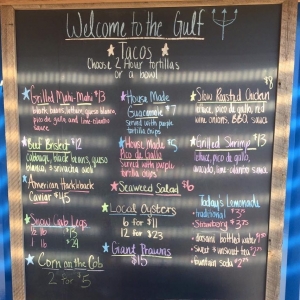 Welcome to the Gulf
Tacos
Choose 2 flour tortillas
or a bowl
Grilled Mahi-Mahi $13
black beans, lettuce, queso blanco,
pico de gallo, and lime cilantro
sauce
$12
cabbage, black beans, queso
blanco, & sriracha
American Hackleback
Caviar $45
Snow Crab Legs
1/2 lb $13
1 lb $24
Corn on the Cob
2 for $5
House Made
Guacamole $7
served with purple
tortilla chips
House Made $5
Pico de Gallo
served with purple
tortilla chips
Seaweed Salad $6
Local Oysters
6 for $11
12 for $
Giant Prawns
$15
Slow Roasted Chicken $8
pico de gallo, red
wine onions, BBQ sauce
Grilled Shrimp $13
lettuce, pico de gallo,
avocado, lime-cilantro sauce
Today's Lemonade
traditional
strawberry
dasani bottled water
sweet & unsweet tea
fountain soda